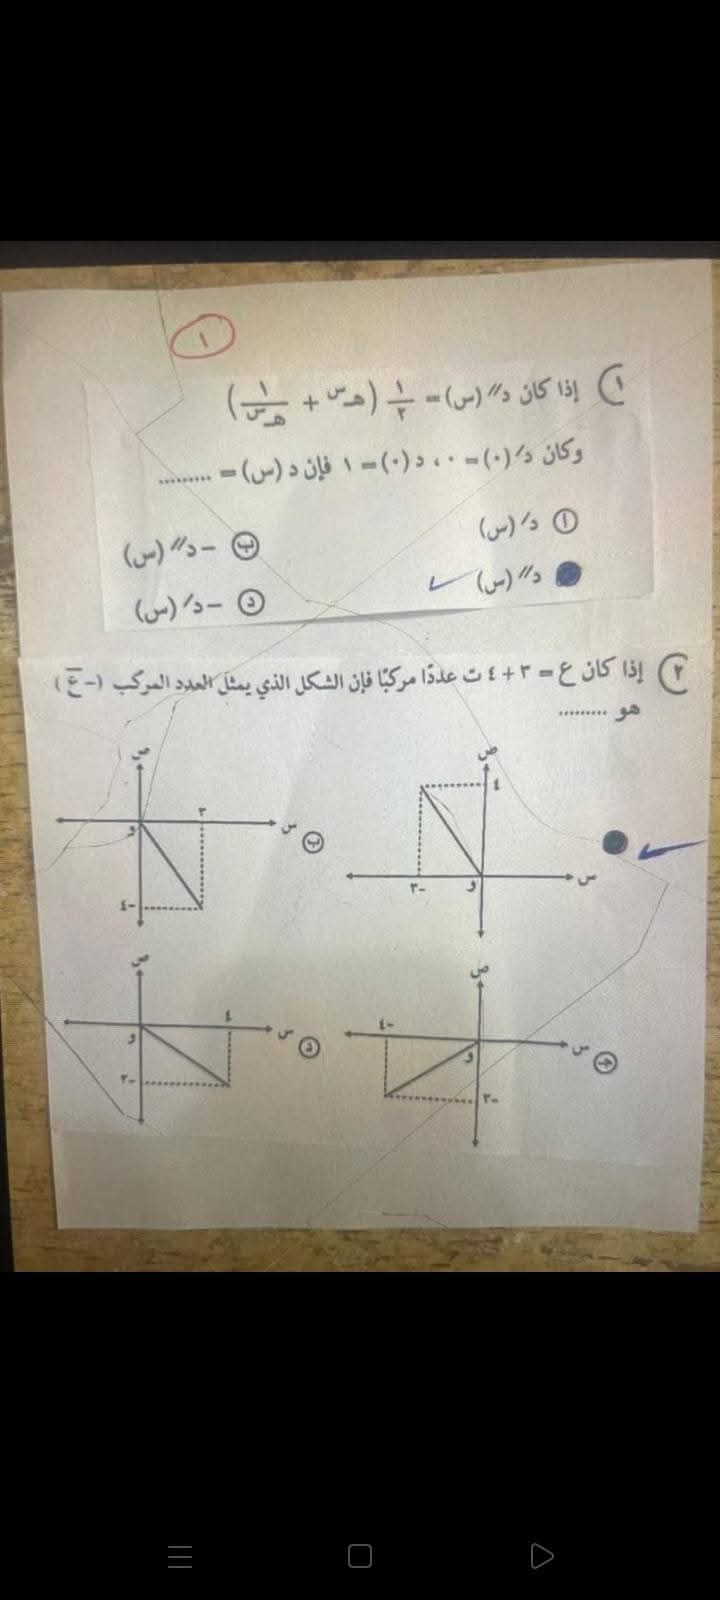 ١
١) إذا كان د//(س) = ١/٢ (هـس + ١/هـس)
وكان د/(٠) = ٠ ، د(٠) = ١ فإن د(س) = .........
أ د/(س)
ب - د//(س)
د//(س)
د - د/(س)
٢) إذا كان ع = ٣ + ٤ ت عددًا مركبًا فإن الشكل الذي يمثل العدد المركب (-ع̅)
هو .........
ص
٤
٣-
و
س
ب
ص
٣
س
و
٤-
جـ
ص
٤-
س
و
٣-
د
ص
٤
س
و
٣-